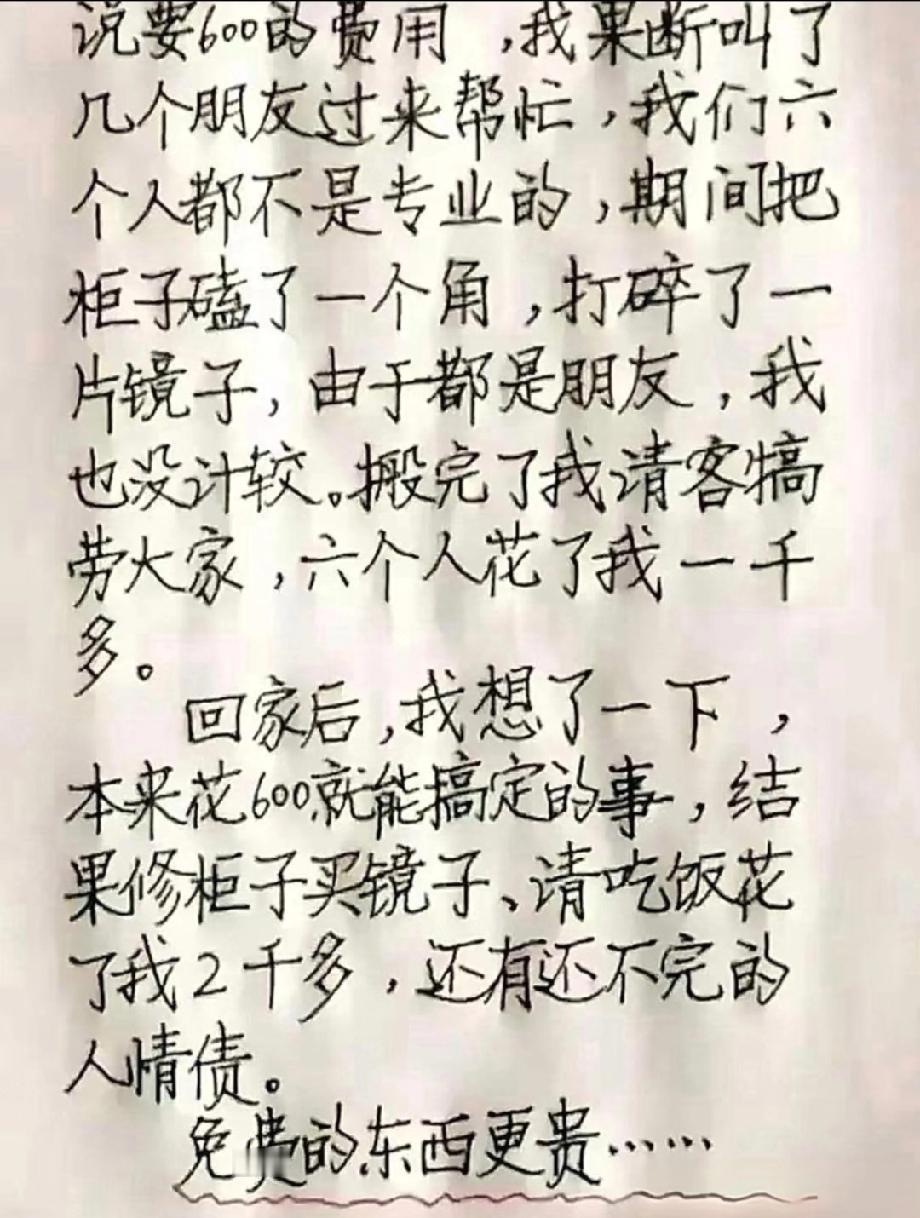 说要600的费用,我果断叫了
几个朋友过来帮忙,我们六
个人都不是专业的,期间把
柜子磕了一个角,打碎了一
片镜子,由于都是朋友,我
也没计较。搬完了我请客犒
劳大家,六个人花了我一千
多。
回家后,我想了一下,
本来花600就能搞定的事,结
果修柜子买镜子、请吃饭花
了我2千多,还有还不完的
人情债。
免费的东西更贵……